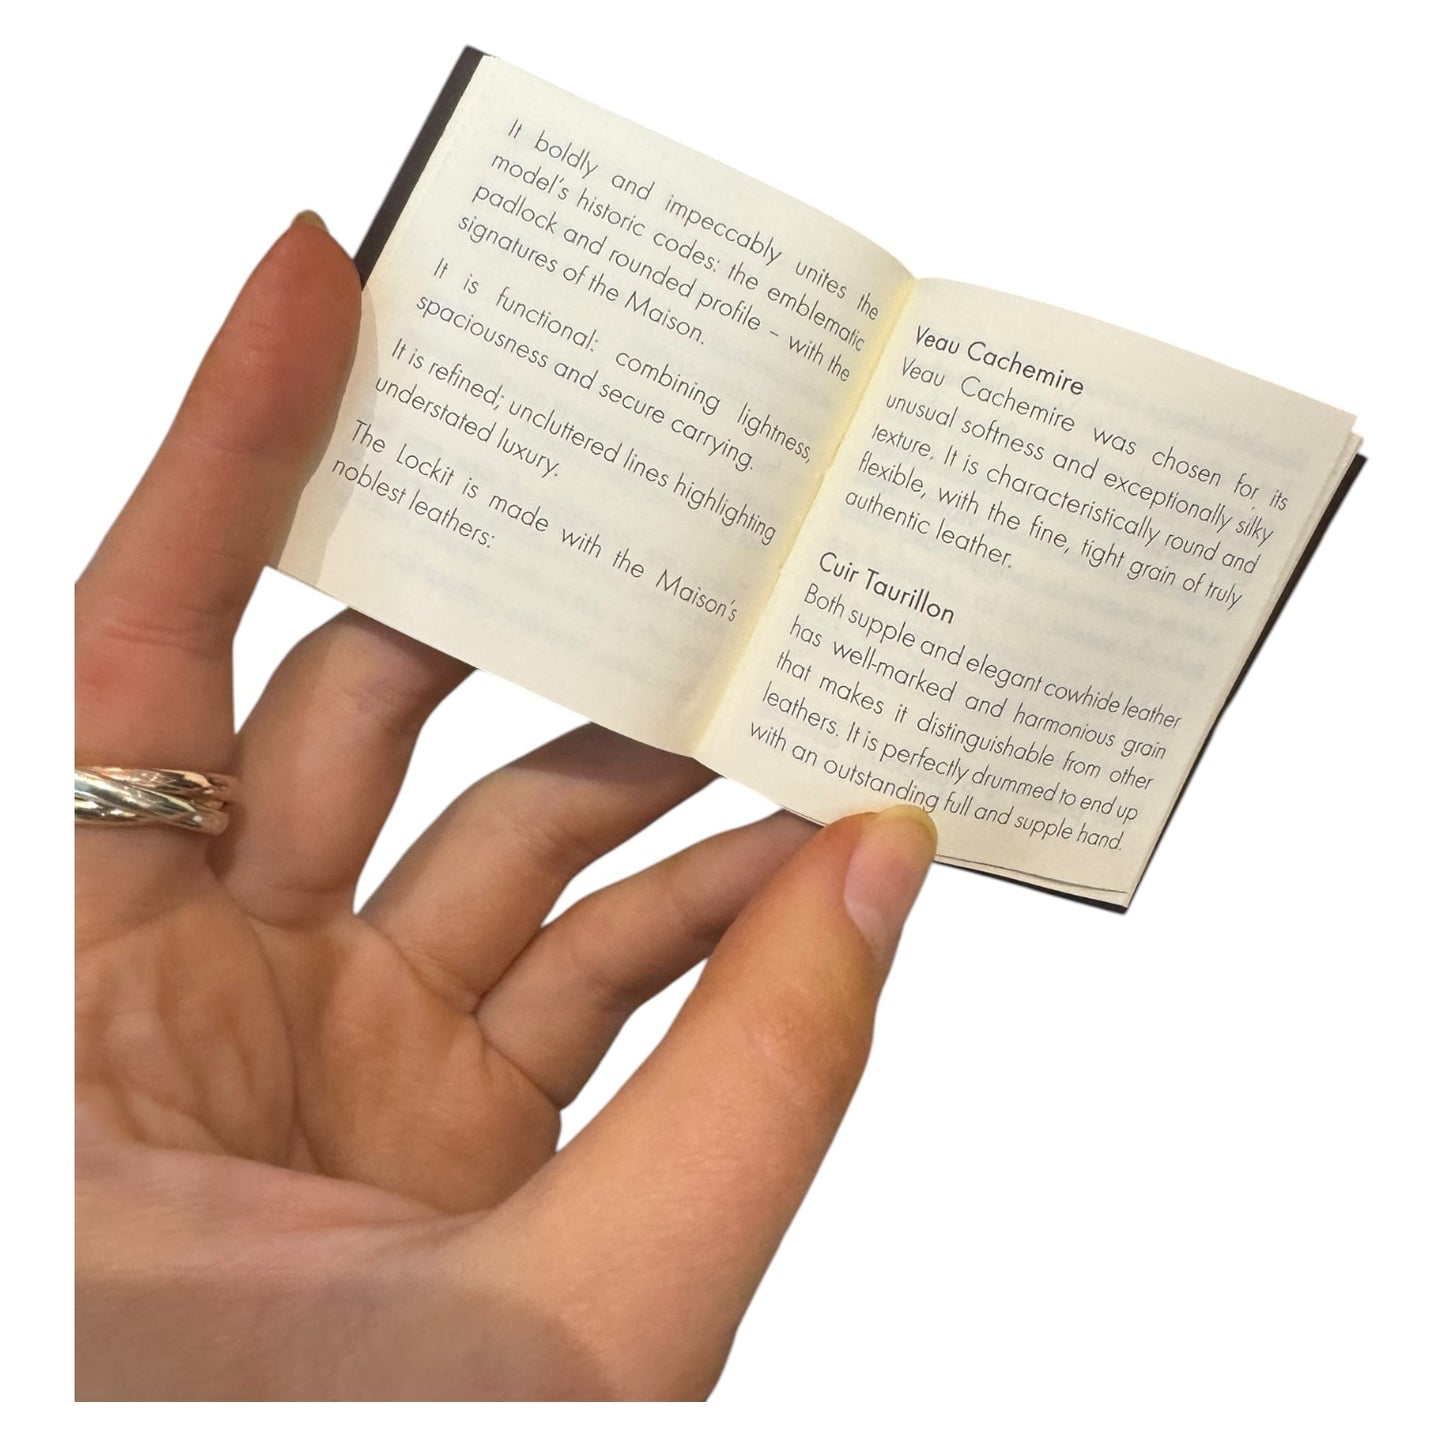 It boldly and impeccably unites the
model's historic codes: the emblematic
padlock and rounded profile – with the
signatures of the Maison.
It is functional: combining lightness,
spaciousness and secure carrying.
It is refined; uncluttered lines highlighting
understated luxury.
The Lockit is made with the Maison's
noblest leathers:
Veau Cachemire
Veau Cachemire was chosen for its
unusual softness and exceptionally silky
texture. It is characteristically round and
flexible, with the fine, tight grain of truly
authentic leather.
Cuir Taurillon
Both supple and elegant cowhide leather
has well-marked and harmonious grain
that makes it distinguishable from other
leathers. It is perfectly drummed to end up
with an outstanding full and supple hand.